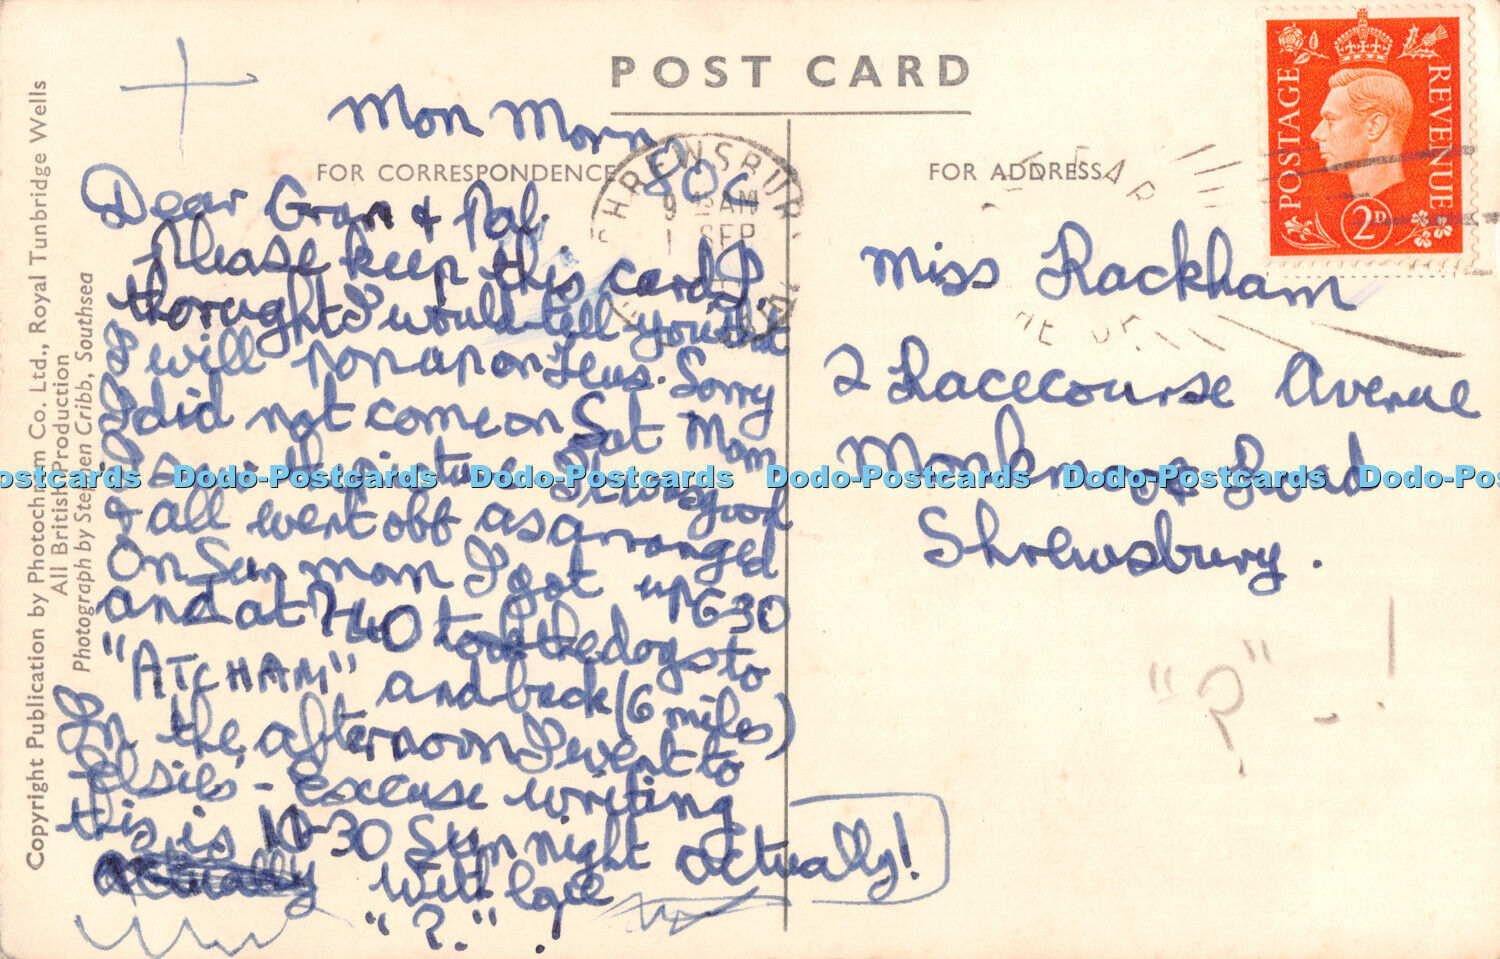 POST CARD
FOR CORRESPONDENCE
FOR ADDRESS
POSTAGE
REVENUE
2D
SHREWSBURY
9 15 AM
1 SEP
Mon Morn
Dear Gran & Pal.
Please keep this card I
thought I would tell you that
I will pop up on Tues. Sorry
I did not come on Sat Morn
I saw the picture It was good
& all went off as arranged
On Sun morn I got up 6-30
and at 7-40 took the dogs to
"ATCHAM" and back (6 miles)
In the afternoon I went to
Elsies - excuse writing
this is 10-30 Sun night actually!
actually with love
"?" !
Miss Rackham
2 Racecourse Avenue
Monkmoor Road
Shrewsbury.
"?" - !
Copyright Publication by Photochrom Co. Ltd., Royal Tunbridge Wells
All British Production
Photograph by Stephen Cribb, Southsea
Dodo-Postcards Dodo-Postcards Dodo-Postcards Dodo-Postcards Dodo-Postcards